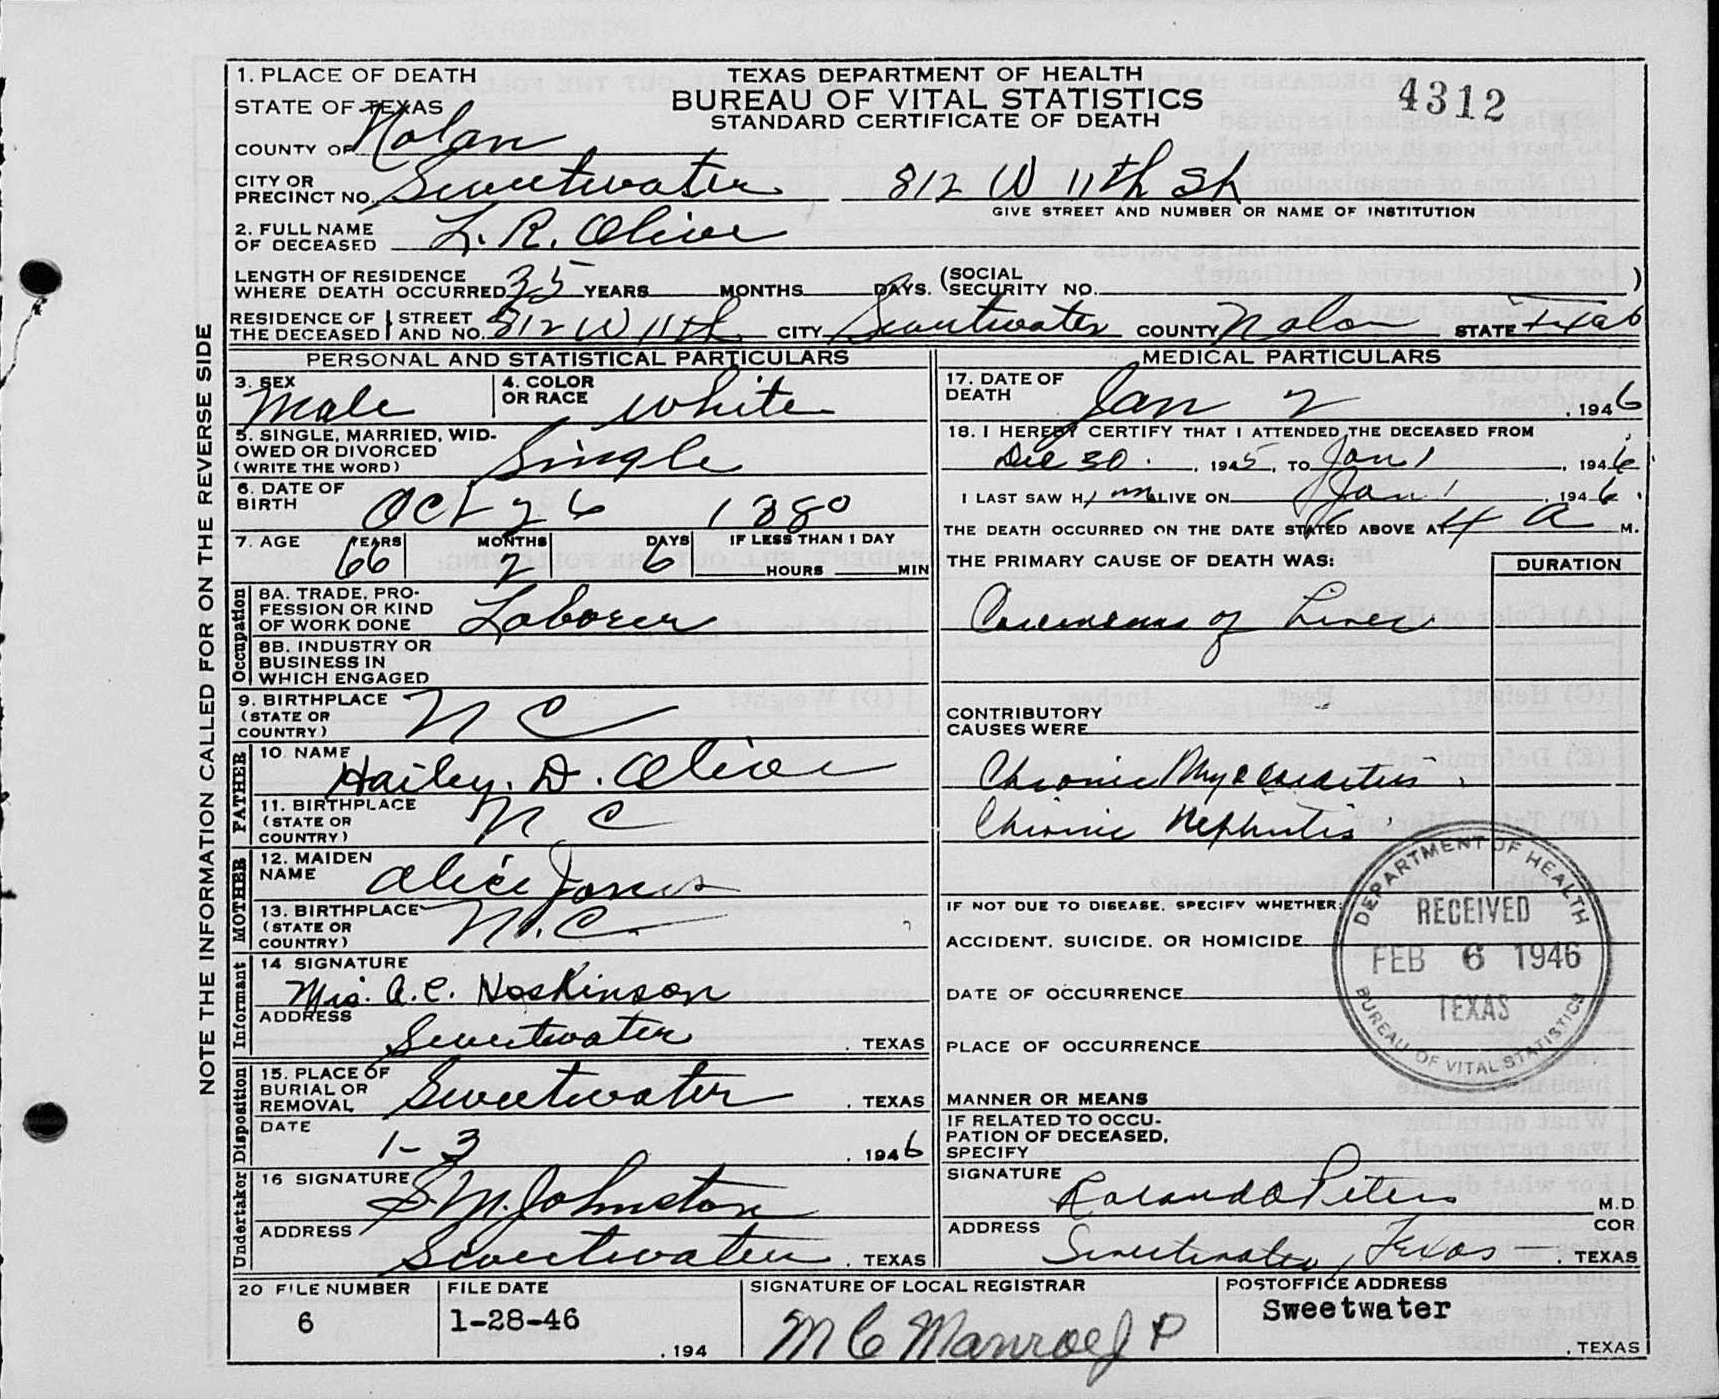 1. PLACE OF DEATH
STATE OF TEXAS
COUNTY OF Nolan
CITY OR PRECINCT NO. Sweetwater
TEXAS DEPARTMENT OF HEALTH
BUREAU OF VITAL STATISTICS
STANDARD CERTIFICATE OF DEATH
4312
812 W 11th St
GIVE STREET AND NUMBER OR NAME OF INSTITUTION
2. FULL NAME OF DECEASED L. R. Olive
LENGTH OF RESIDENCE WHERE DEATH OCCURRED 35 YEARS MONTHS DAYS. (SOCIAL SECURITY NO. )
RESIDENCE OF THE DECEASED STREET AND NO. 812 W 11th CITY Sweetwater COUNTY Nolan STATE Texas
NOTE THE INFORMATION CALLED FOR ON THE REVERSE SIDE
PERSONAL AND STATISTICAL PARTICULARS
3. SEX Male
4. COLOR OR RACE White
5. SINGLE, MARRIED, WIDOWED OR DIVORCED (WRITE THE WORD) Single
6. DATE OF BIRTH Oct 26 1880
7. AGE YEARS 66 MONTHS 2 DAYS 6 IF LESS THAN 1 DAY HOURS MIN
Occupation
8A. TRADE, PROFESSION OR KIND OF WORK DONE Laborer
8B. INDUSTRY OR BUSINESS IN WHICH ENGAGED
9. BIRTHPLACE (STATE OR COUNTRY) N C
FATHER
10. NAME Hailey. D. Olive
11. BIRTHPLACE (STATE OR COUNTRY) N C
MOTHER
12. MAIDEN NAME Alice Jones
13. BIRTHPLACE (STATE OR COUNTRY) N. C.
Informant
14 SIGNATURE Mrs. A. C. Hoskinson
ADDRESS Sweetwater . TEXAS
Disposition
15. PLACE OF BURIAL OR REMOVAL Sweetwater . TEXAS
DATE 1-3 . 1946
Undertaker
16 SIGNATURE S. M. Johnston
ADDRESS Sweetwater . TEXAS
MEDICAL PARTICULARS
17. DATE OF DEATH Jan 2 , 1946
18. I HEREBY CERTIFY THAT I ATTENDED THE DECEASED FROM
Dec 30 . , 1945, TO Jan 1 , 1946.
I LAST SAW HIM ALIVE ON Jan 1 , 1946.
THE DEATH OCCURRED ON THE DATE STATED ABOVE AT 4 A M.
THE PRIMARY CAUSE OF DEATH WAS:
DURATION
Carcinoma of Liver
CONTRIBUTORY CAUSES WERE
Chronic Myocarditis
Chronic Nephritis
IF NOT DUE TO DISEASE, SPECIFY WHETHER:
ACCIDENT, SUICIDE, OR HOMICIDE
DATE OF OCCURRENCE
PLACE OF OCCURRENCE
MANNER OR MEANS
IF RELATED TO OCCUPATION OF DECEASED, SPECIFY
DEPARTMENT OF HEALTH
RECEIVED
FEB 6 1946
TEXAS
BUREAU OF VITAL STATISTICS
SIGNATURE Peters M.D.
COR
ADDRESS Sweetwater, Texas . TEXAS
20 FILE NUMBER 6
FILE DATE 1-28-46 , 194
SIGNATURE OF LOCAL REGISTRAR M C Manroe J P
POSTOFFICE ADDRESS Sweetwater , TEXAS